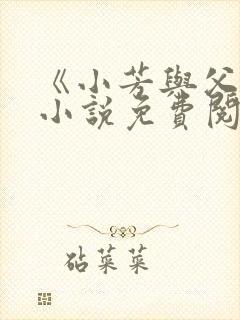 《小芳與父
小說免費閱
砧菜菜